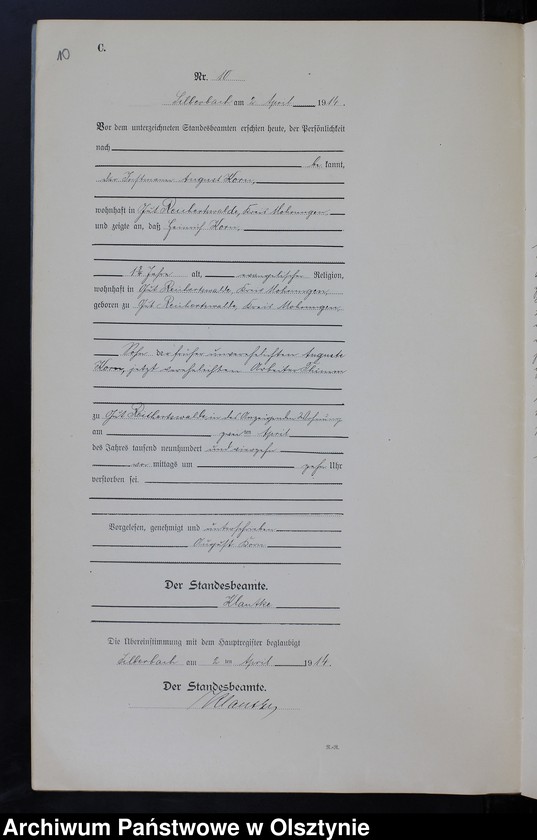 10
C.
Nr. 10
Silberbach am 2 April 1914.
Vor dem unterzeichneten Standesbeamten erschien heute, der Persönlichkeit
nach
be kannt,
der August Korn,
wohnhaft in Gut Reichertswalde, Kreis Mohrungen
und zeigte an, daß Heinrich Korn,
14 Jahre alt, evangelischer Religion,
wohnhaft in Gut Reichertswalde, Kreis Mohrungen,
geboren zu Gut Reichertswalde, Kreis Mohrungen,
Sohn der früher unverehelichten Auguste
Korn, jetzt verehelichten Arbeiter
zu Gut Reichertswalde, in des Anzeigenden Wohnung
am zweiten April
des Jahres tausend neunhundert und vierzehn
vor mittags um zehn Uhr
verstorben sei.
Vorgelesen, genehmigt und unterschrieben
August Korn
Der Standesbeamte.
Klautke
Die Übereinstimmung mit dem Hauptregister beglaubigt
Silberbach am 2 ten April 1914.
Der Standesbeamte.
Klautke
Archiwum Państwowe w Olsztynie